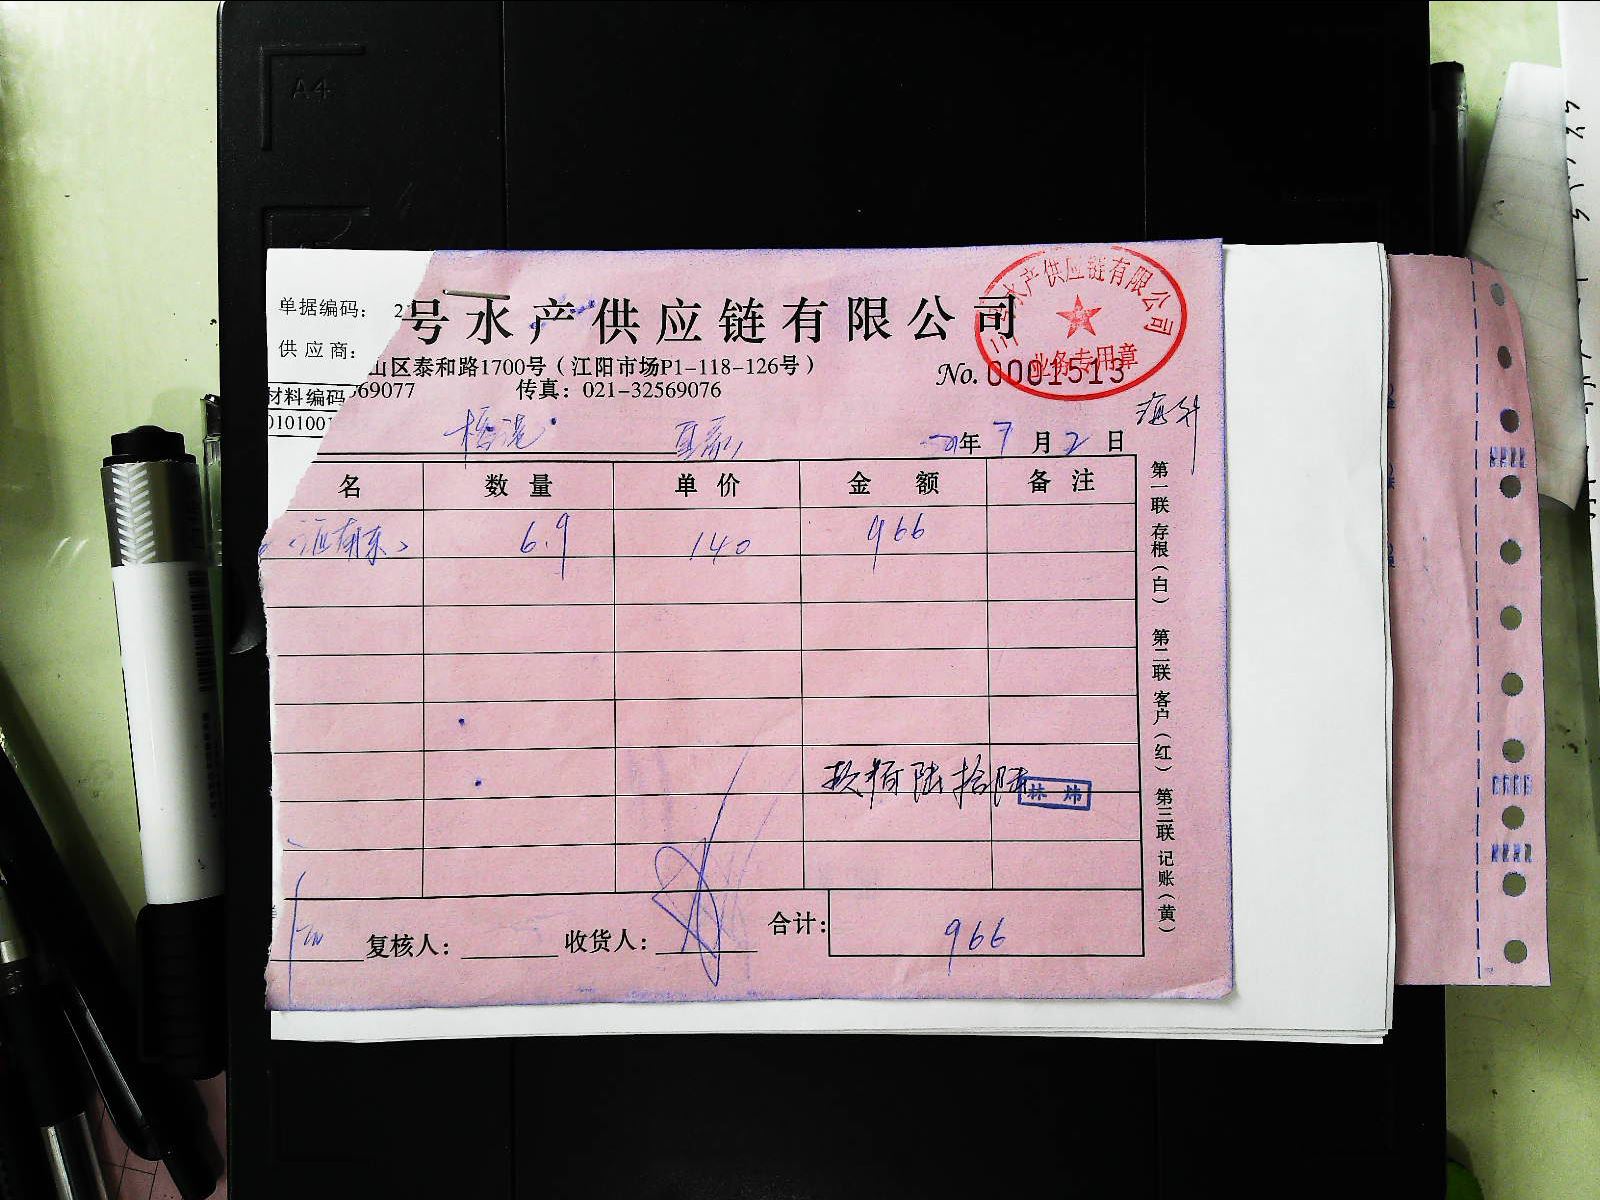 A4
单据编码： 2
号水产供应链有限公司
水产供应链有限公司
业务专用章
供应商：
山区泰和路1700号（江阳市场P1-118-126号）
No. 0001513
材料编码
69077 传真：021-32569076
010100
年 7 月 2 日
名 数量 单价 金额 备注
6.9 140 966
玖佰陆拾陆
林炜
复核人： 收货人： 合计： 966
第一联 存根（白） 第二联 客户（红） 第三联 记账（黄）